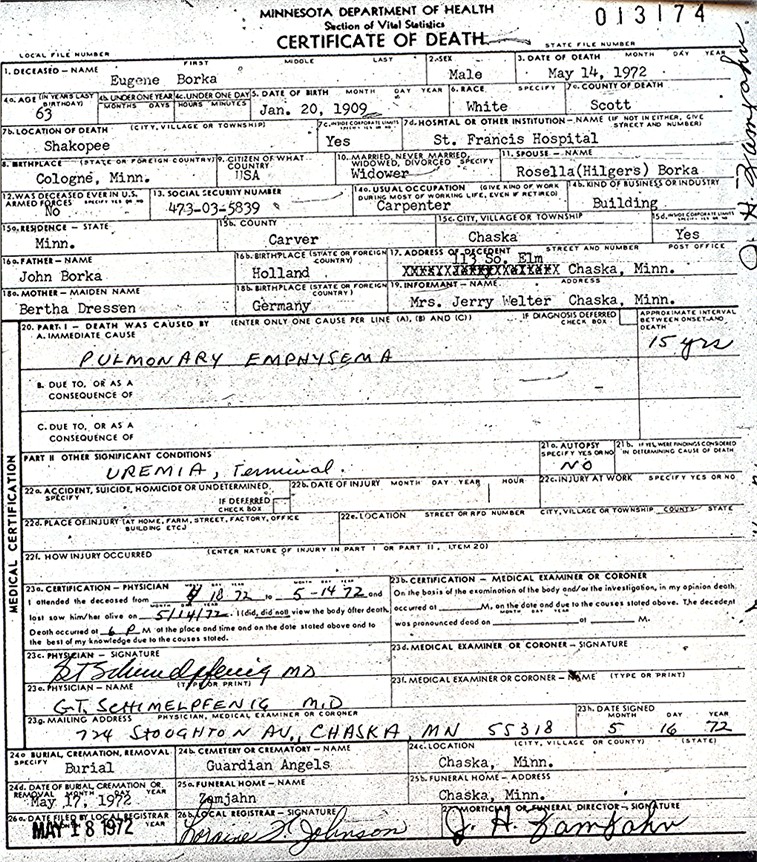 MINNESOTA DEPARTMENT OF HEALTH
Section of Vital Statistics
CERTIFICATE OF DEATH
013174
LOCAL FILE NUMBER STATE FILE NUMBER
1. DECEASED — NAME FIRST MIDDLE LAST 2. SEX 3. DATE OF DEATH MONTH DAY YEAR
Eugene Borka Male May 14, 1972
4a. AGE (IN YEARS LAST BIRTHDAY) 4b. UNDER ONE YEAR MONTHS DAYS 4c. UNDER ONE DAY HOURS MINUTES 5. DATE OF BIRTH MONTH DAY YEAR 6. RACE SPECIFY 7a. COUNTY OF DEATH
63 Jan. 20, 1909 White Scott
7b. LOCATION OF DEATH (CITY, VILLAGE OR TOWNSHIP) 7c. INSIDE CORPORATE LIMITS SPECIFY YES OR NO 7d. HOSPITAL OR OTHER INSTITUTION — NAME (IF NOT IN EITHER, GIVE STREET AND NUMBER)
Shakopee Yes St. Francis Hospital
8. BIRTHPLACE (STATE OR FOREIGN COUNTRY) 9. CITIZEN OF WHAT COUNTRY 10. MARRIED, NEVER MARRIED, WIDOWED, DIVORCED SPECIFY 11. SPOUSE — NAME
Cologne, Minn. USA Widower Rosella(Hilgers) Borka
12. WAS DECEASED EVER IN U.S. ARMED FORCES SPECIFY YES OR NO 13. SOCIAL SECURITY NUMBER 14a. USUAL OCCUPATION (GIVE KIND OF WORK DURING MOST OF WORKING LIFE, EVEN IF RETIRED) 14b. KIND OF BUSINESS OR INDUSTRY
No 473-03-5839 Carpenter Building
15a. RESIDENCE — STATE 15b. COUNTY 15c. CITY, VILLAGE OR TOWNSHIP 15d. INSIDE CORPORATE LIMITS SPECIFY YES OR NO
Minn. Carver Chaska Yes
16a. FATHER — NAME 16b. BIRTHPLACE (STATE OR FOREIGN COUNTRY) 17. ADDRESS OF DECEDENT STREET AND NUMBER POST OFFICE
113 So. Elm
John Borka Holland Chaska, Minn.
18a. MOTHER — MAIDEN NAME 18b. BIRTHPLACE (STATE OR FOREIGN COUNTRY) 19. INFORMANT — NAME ADDRESS
Bertha Dressen Germany Mrs. Jerry Welter Chaska, Minn.
MEDICAL CERTIFICATION
20. PART I — DEATH WAS CAUSED BY (ENTER ONLY ONE CAUSE PER LINE (A), (B) AND (C)) IF DIAGNOSIS DEFERRED CHECK BOX APPROXIMATE INTERVAL BETWEEN ONSET AND DEATH
A. IMMEDIATE CAUSE
PULMONARY EMPHYSEMA 15 yrs
B. DUE TO, OR AS A CONSEQUENCE OF
C. DUE TO, OR AS A CONSEQUENCE OF
PART II OTHER SIGNIFICANT CONDITIONS 21a. AUTOPSY SPECIFY YES OR NO 21b. IF YES, WERE FINDINGS CONSIDERED IN DETERMINING CAUSE OF DEATH
UREMIA, Terminal. NO
22a. ACCIDENT, SUICIDE, HOMICIDE OR UNDETERMINED, SPECIFY IF DEFERRED CHECK BOX 22b. DATE OF INJURY MONTH DAY YEAR HOUR 22c. INJURY AT WORK SPECIFY YES OR NO
22d. PLACE OF INJURY (AT HOME, FARM, STREET, FACTORY, OFFICE BUILDING ETC.) 22e. LOCATION STREET OR RFD NUMBER CITY, VILLAGE OR TOWNSHIP COUNTY STATE
22f. HOW INJURY OCCURRED (ENTER NATURE OF INJURY IN PART I OR PART II, ITEM 20)
23a. CERTIFICATION — PHYSICIAN MONTH DAY YEAR MONTH DAY YEAR
I attended the deceased from 18 72 to 5-14 72 and
last saw him/her alive on 5/14/72. I (did, did not) view the body after death.
Death occurred at 6 P M at the place and time and on the date stated above and to
the best of my knowledge due to the causes stated.
23b. CERTIFICATION — MEDICAL EXAMINER OR CORONER
On the basis of the examination of the body and/or the investigation, in my opinion death
occurred at M, on the date and due to the causes stated above. The decedent
MONTH DAY YEAR
was pronounced dead on at M.
23c. PHYSICIAN — SIGNATURE 23d. MEDICAL EXAMINER OR CORONER — SIGNATURE
GT Schimelpfenig MD
23e. PHYSICIAN — NAME (TYPE OR PRINT) 23f. MEDICAL EXAMINER OR CORONER — NAME (TYPE OR PRINT)
G.T. SCHIMELPFENIG M.D
23g. MAILING ADDRESS PHYSICIAN, MEDICAL EXAMINER OR CORONER 23h. DATE SIGNED MONTH DAY YEAR
724 STOUGHTON AV., CHASKA, MN 55318 5 16 72
24a. BURIAL, CREMATION, REMOVAL SPECIFY 24b. CEMETERY OR CREMATORY — NAME 24c. LOCATION (CITY, VILLAGE OR COUNTY) (STATE)
Burial Guardian Angels Chaska, Minn.
24d. DATE OF BURIAL, CREMATION OR REMOVAL MONTH DAY YEAR 25a. FUNERAL HOME — NAME 25b. FUNERAL HOME — ADDRESS
May 17, 1972 Zamjahn Chaska, Minn.
26a. DATE FILED BY LOCAL REGISTRAR MONTH DAY YEAR 26b. LOCAL REGISTRAR — SIGNATURE 27. MORTICIAN OR FUNERAL DIRECTOR — SIGNATURE
MAY 18 1972 Loraine S. Johnson J. H. Zamjahn
J. H. Zamjahn